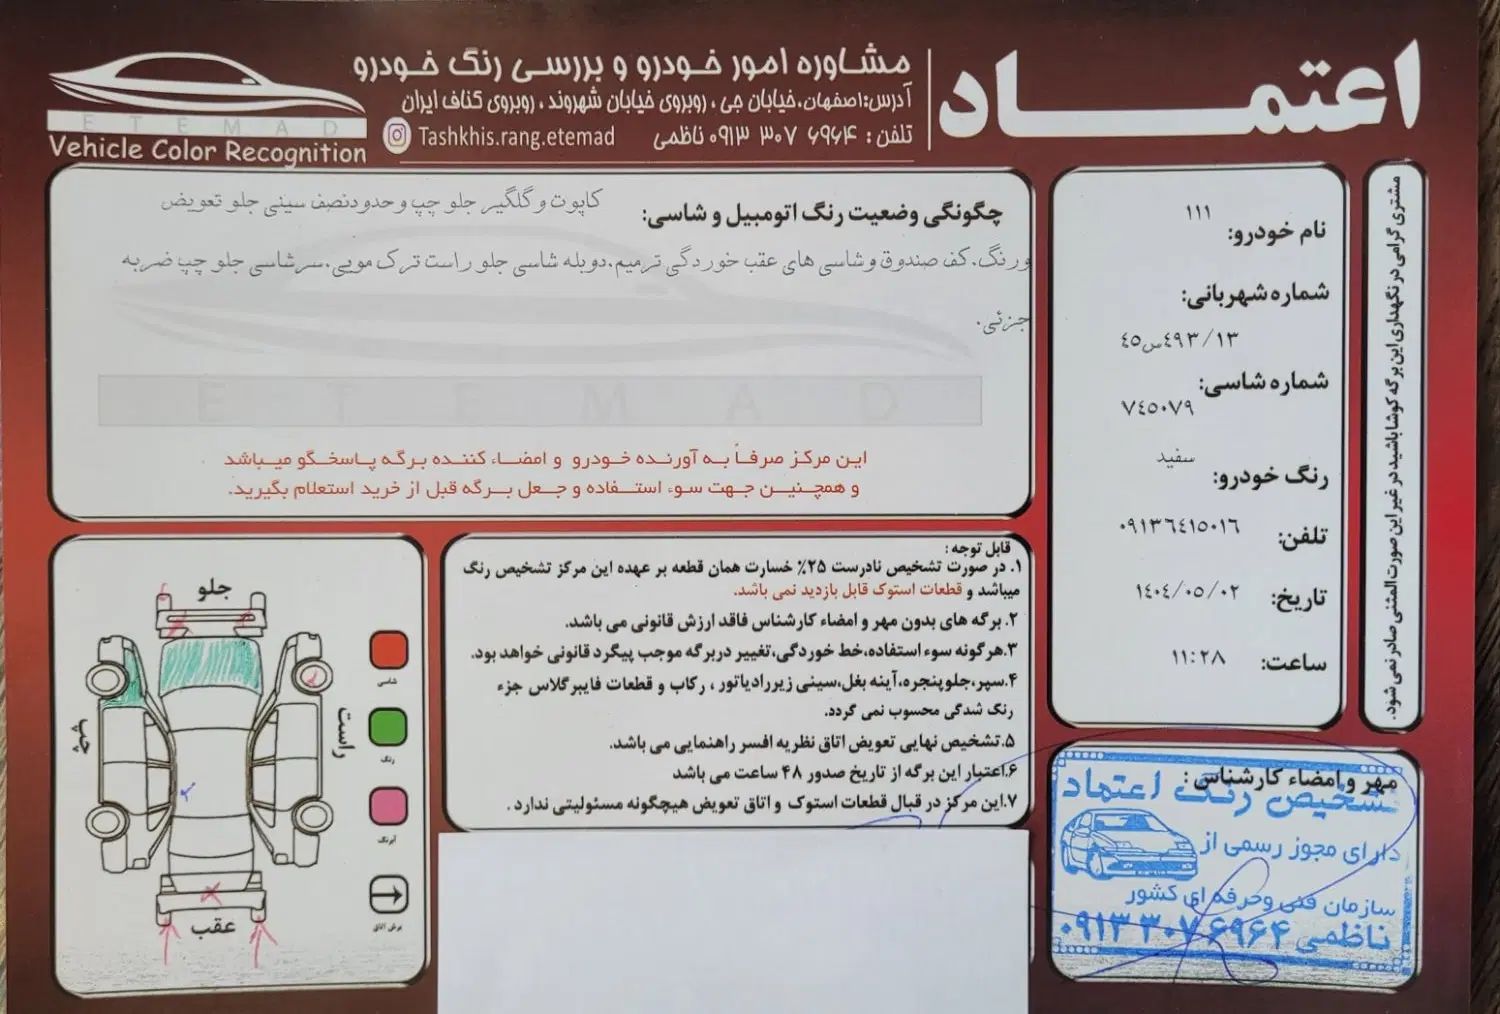 اعتماد
مشاوره امور خودرو و بررسی رنگ خودرو
آدرس:اصفهان،خیابان جی ، روبروی خیابان شهروند ، روبروی کناف ایران
تلفن : ۰۹۱۳ ۳۰۷ ۶۹۶۴ ناظمی
Tashkhis.rang.etemad
ETEMAD
Vehicle Color Recognition
مشتری گرامی در نگهداری این برگه کوشا باشید در غیر این صورت المثنی صادر نمی شود.
نام خودرو: ۱۱۱
شماره شهربانی:
۱۳/ ۴۹۳س۴۵
شماره شاسی:
۷۴۵۰۷۹
رنگ خودرو: سفید
تلفن: ۰۹۱۳۶۴۱۵۰۱۶
تاریخ: ۱۴۰۴/۰۵/۰۲
ساعت: ۱۱:۲۸
چگونگی وضعیت رنگ اتومبیل و شاسی: کاپوت و گلگیر جلو چپ و حدودنصف سینی جلو تعویض
ورنگ.کف صندوق وشاسی های عقب خوردگی ترمیم.دوبله شاسی جلو راست ترک مویی.سرشاسی جلو چپ ضربه
جزئی.
ETEMAD
این مرکز صرفاً به آورنده خودرو و امضاء کننده برگه پاسخگو میباشد
و همچنین جهت سوء استفاده و جعل برگه قبل از خرید استعلام بگیرید.
قابل توجه :
۱. در صورت تشخیص نادرست ۲۵% خسارت همان قطعه بر عهده این مرکز تشخیص رنگ
میباشد و قطعات استوک قابل بازدید نمی باشد.
۲. برگه های بدون مهر و امضاء کارشناس فاقد ارزش قانونی می باشد.
۳.هرگونه سوء استفاده،خط خوردگی،تغییر دربرگه موجب پیگرد قانونی خواهد بود.
۴.سپر،جلوپنجره،آینه بغل،سینی زیررادیاتور ، رکاب و قطعات فایبرگلاس جزء
رنگ شدگی محسوب نمی گردد.
۵.تشخیص نهایی تعویض اتاق نظریه افسر راهنمایی می باشد.
۶.اعتبار این برگه از تاریخ صدور ۴۸ ساعت می باشد
۷.این مرکز در قبال قطعات استوک و اتاق تعویض هیچگونه مسئولیتی ندارد .
جلو
راست
چپ
عقب
شاسی
رنگ
آبرنگ
برش اتاق
مهر و امضاء کارشناس :
تشخیص رنگ اعتماد
دارای مجوز رسمی از
سازمان فنی وحرفه ای کشور
ناظمی ۰۹۱۳ ۳۰۷ ۶۹۶۴